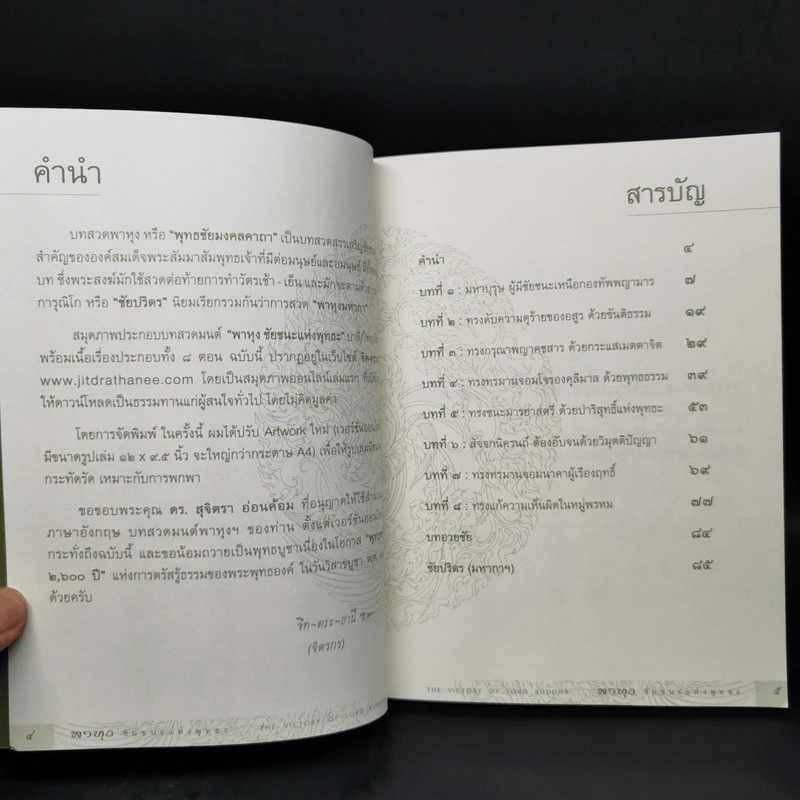 คำนำ
บทสวดพาหุง หรือ “พุทธชัยมงคลคาถา” เป็นบทสวดสรรเสริญชัยชนะ
สำคัญขององค์สมเด็จพระสัมมาสัมพุทธเจ้าที่มีต่อมนุษย์และอมนุษย์
บท ซึ่งพระสงฆ์มักใช้สวดต่อท้ายการทำวัตรเช้า - เย็น และมักจะตามด้วย
การุณิโก หรือ “ชัยปริตร” นิยมเรียกรวมกันว่าการสวด “พาหุงมหากา”
สมุดภาพประกอบบทสวดมนต์ “พาหุง ชัยชนะแห่งพุทธะ”
พร้อมเนื้อเรื่องประกอบทั้ง ๘ ตอน ฉบับนี้ ปรากฏอยู่ในเว็บไซต์
www.jitdrathanee.com โดยเป็นสมุดภาพออนไลน์เล่มแรก
ให้ดาวน์โหลดเป็นธรรมทานแก่ผู้สนใจทั่วไป โดยไม่คิดมูลค่า
โดยการจัดพิมพ์ ในครั้งนี้ ผมได้ปรับ Artwork ใหม่
มีขนาดรูปเล่ม ๑๒ x ๙.๕ นิ้ว จะใหญ่กว่ากระดาษ A4) เพื่อให้รูปเล่ม
กระทัดรัด เหมาะกับการพกพา
ขอขอบพระคุณ ดร. สุจิตรา อ่อนค้อม ที่อนุญาตให้ใช้
ภาษาอังกฤษ บทสวดมนต์พาหุงฯ ของท่าน ตั้งแต่เวอร์ชันออนไลน์
กระทั่งถึงฉบับนี้ และขอน้อมถวายเป็นพุทธบูชาเนื่องในโอกาส
๒,๖๐๐ ปี” แห่งการตรัสรู้ธรรมของพระพุทธองค์ ในวันวิสาขบูชา พ.ศ.
ด้วยครับ
จิต~ดระ~ธานี
(จิตรกร)
๔ พาหุง ชัยชนะแห่งพุทธะ THE VICTORY OF LORD
สารบัญ
คำนำ ๔
บทที่ ๑ : มหาบุรุษ ผู้มีชัยชนะเหนือกองทัพพญามาร ๗
บทที่ ๒ : ทรงดับความดุร้ายของอสูร ด้วยขันติธรรม ๑๙
บทที่ ๓ : ทรงกรุณาพญาคชสาร ด้วยกระแสเมตตาจิต ๒๙
บทที่ ๔ : ทรงทรมานจอมโจรองคุลีมาล ด้วยพุทธธรรม ๓๙
บทที่ ๕ : ทรงชนะมารยาสตรี ด้วยปาริสุทธิ์แห่งพุทธะ ๕๓
บทที่ ๖ : สัจจกนิครนถ์ ต้องอับจนด้วยวิมุตติปัญญา ๖๑
บทที่ ๗ : ทรงทรมานจอมนาคาผู้เรืองฤทธิ์ ๖๙
บทที่ ๘ : ทรงแก้ความเห็นผิดในหมู่พรหม ๗๗
บทอวยชัย ๘๔
ชัยปริตร (มหากาฯ) ๘๕
THE VICTORY OF LORD BUDDHA พาหุง ชัยชนะแห่งพุทธะ ๕